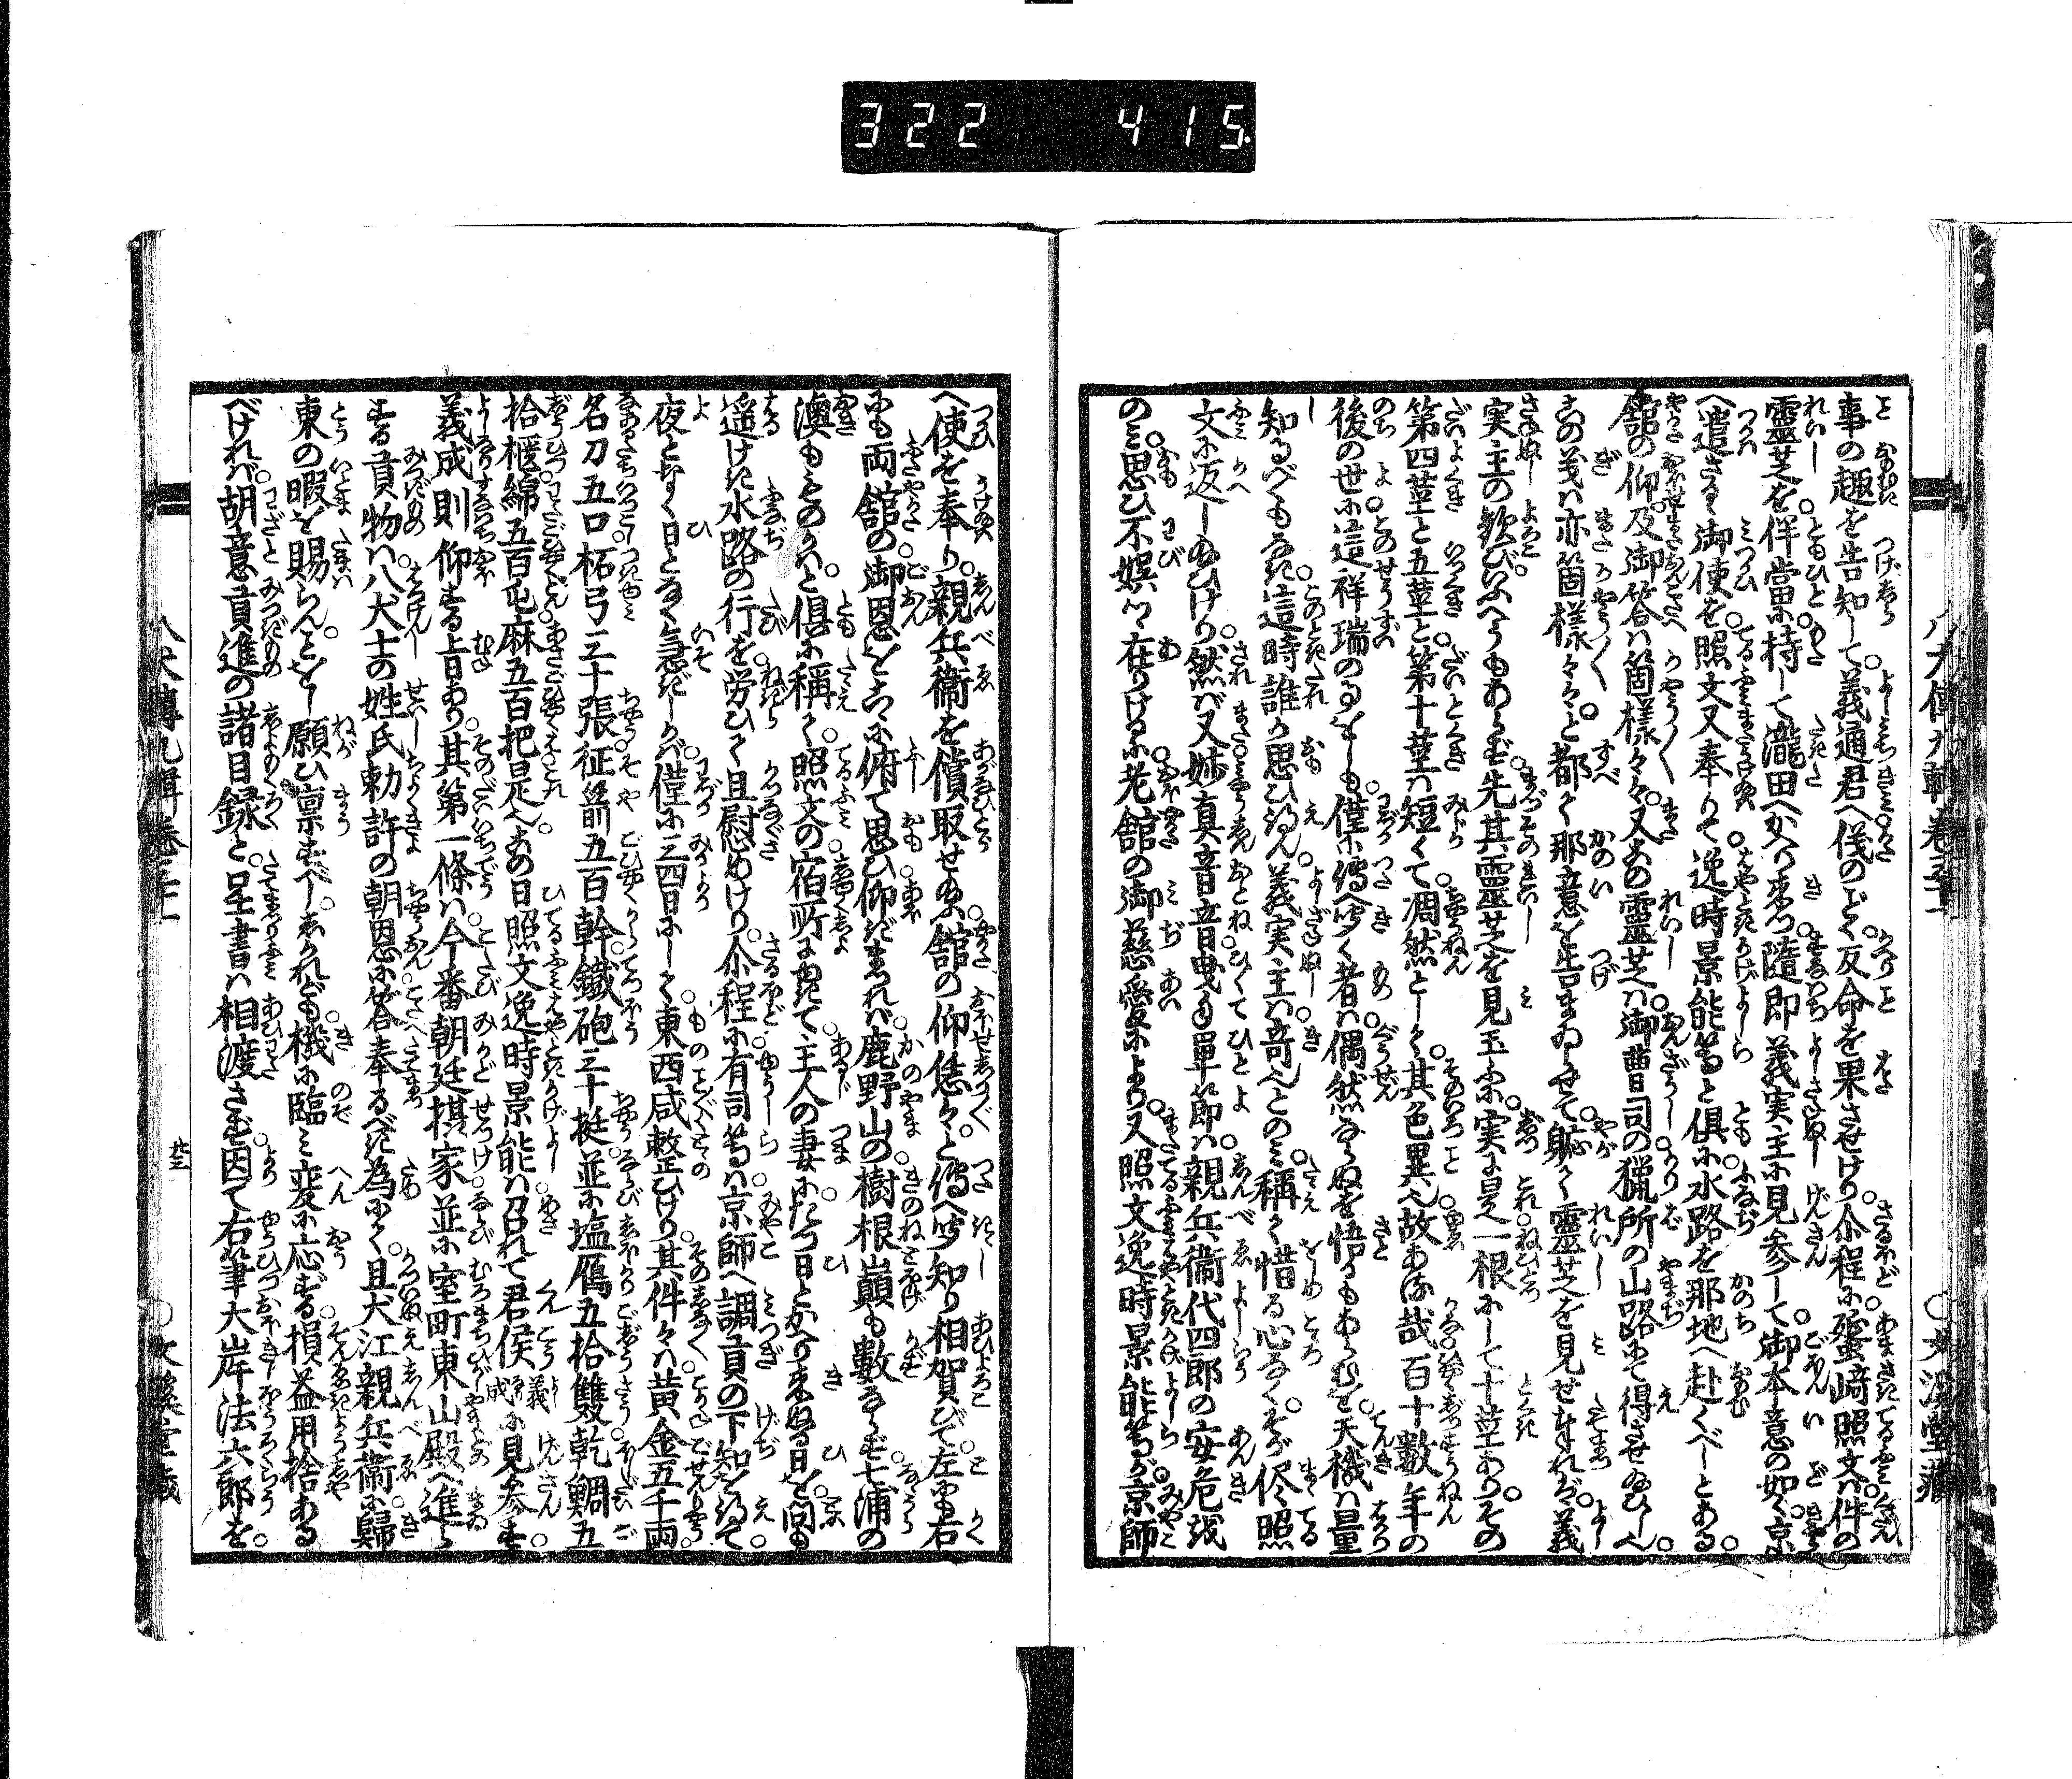 322 415
事の趣を告知して。義通君へ使のごとく反命を果させけり。尒程に蜑崎照文は件の
靈芝を伴當に持して瀧田へかへり來つ。隨即義実主に見参して。御本意の如く京
へ遣さるゝ御使を。照文又奉りて。逸時景能等と倶に水路を那地へ赴くべしとある。
舘の仰。及御答は箇樣々々。又この靈芝は御曹司の獵所の山路にて得させ給ひし。
この義は亦箇樣々々と。都て那意を告まゐらせて。躯て靈芝を見せまゐれば。義
実主の歓びいへうもあらず。先其靈芝を見玉ふに。実に是一根にして十莖あり。その
第四莖と五莖と第十莖は短くて。凋然として其色異也。故あるかな哉百十數年の
後の世に。這祥瑞のるをしも。僅に傳へ聞く者は。偶然ならぬを悟るもあらむを。天機は量
知るべもなき。這時誰か思ひ得ん。義実主は奇也とのみ。稱て惜る心なく。そが侭照
文に返し給ひけり。然ば又姊真音音曳手單節は。親兵衞代四郎の安危視
のみ。思ひ不娯て在りけるに。老舘の御慈愛により。又照文逸時景能等が。京師
へ使を奉り。親兵衞を償取せ給ふ。舘の仰恁々と。傳へ聞知り相賀びて。左にも右
にも両舘の。御恩をこゝに俯て思ひ仰ぎまつれば。鹿野山の樹根巔も數ならず。七浦の
澳もものかはと。倶に稱て。照文の宿所に赴きて。主人の妻にたつ日とかへり來ぬる日を問も
遥けき水路の行を。労ひて且慰めけり。尒程に有司等は。京師へ調貢の下知を得て。
夜となく日となく急ぎしかば。僅に三四日にして。東西咸整ひけり。其件々は。黄金五千両。
名刀五口。柘弓三十張。征箭五百幹。鐵砲三十挺。並に塩鴈五拾雙。乾鯛五
拾櫃。綿五百屯。麻五百把是也。この日照文逸時景能は召れて。君侯義成に見参す。
義成則仰する旨あり。其第一條は。今番朝廷棋家並に室町東山殿へ進ら
する貢物は。八犬士の姓氏勅許の朝恩に答奉るべき為にて。且犬江親兵衞に歸
東の暇を賜らんことをし。願ひ稟すべし。しかれども機に臨み変に応ずる。損益用捨ある
べければ。胡意貢進の諸目録と。呈書は相渡さず。因て右筆大岸法六郎を。
八犬傳九輯卷三十一
廿三
○文溪堂藏